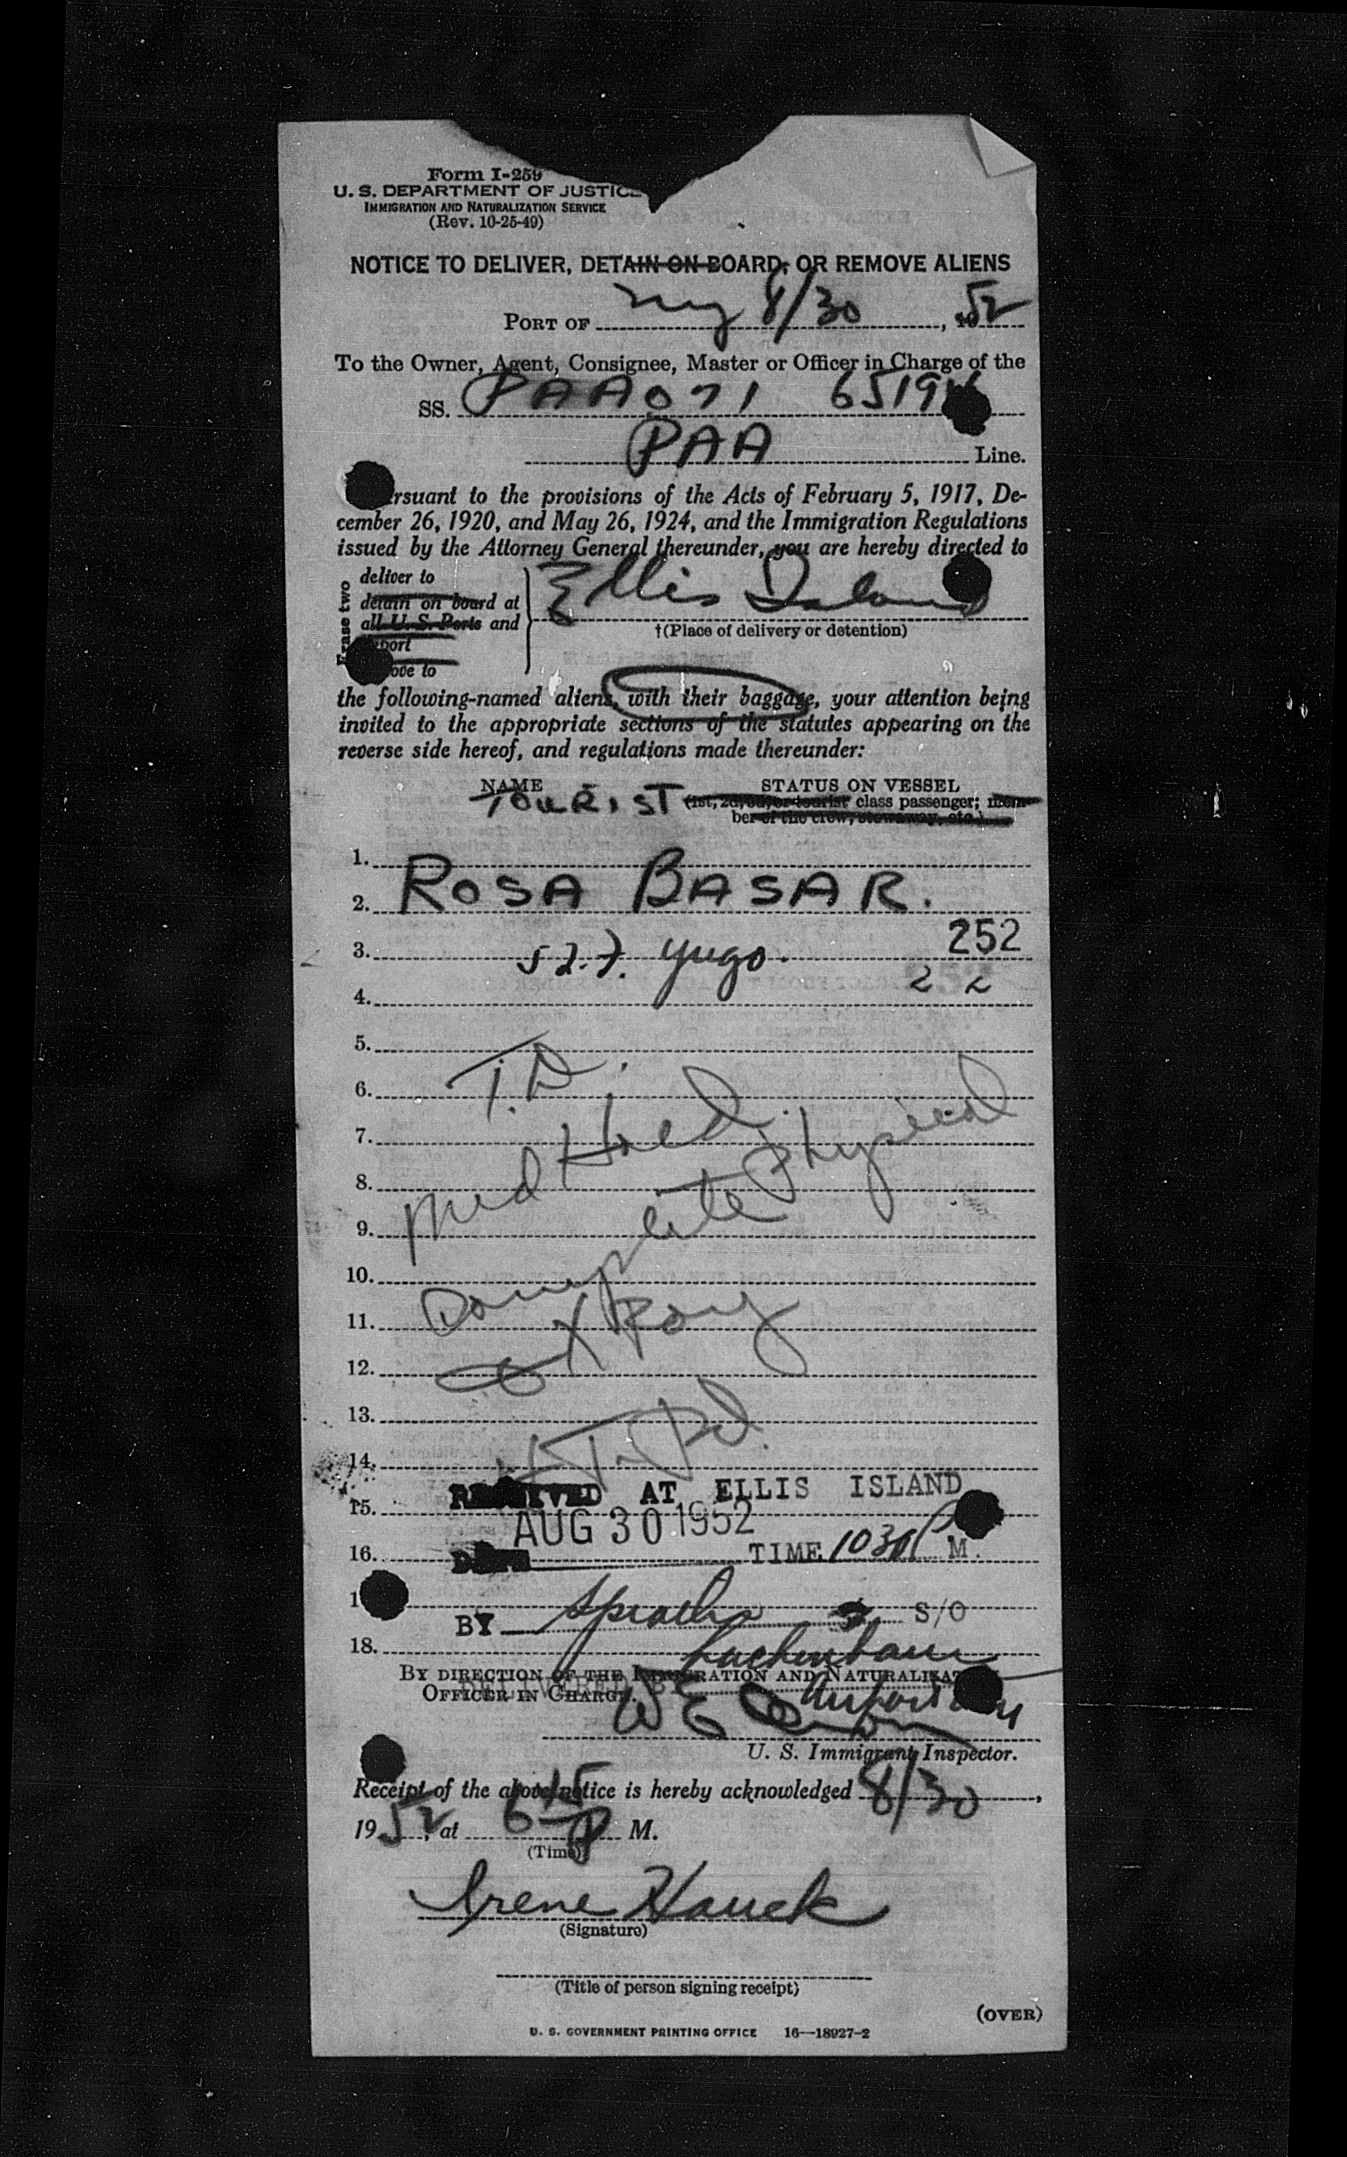 Form I-259
U. S. DEPARTMENT OF JUSTICE
IMMIGRATION AND NATURALIZATION SERVICE
(Rev. 10-25-49)
NOTICE TO DELIVER, DETAIN ON BOARD, OR REMOVE ALIENS
PORT OF ny 8/30, 1952
To the Owner, Agent, Consignee, Master or Officer in Charge of the
SS. PAA 071
PAA Line.
rsuant to the provisions of the Acts of February 5, 1917, De-
cember 26, 1920, and May 26, 1924, and the Immigration Regulations
issued by the Attorney General thereunder, you are hereby directed to
Erase two
deliver to
detain on board at
all U. S. Ports and
port
ove to
Ellis Island
†(Place of delivery or detention)
the following-named aliens, with their baggage, your attention being
invited to the appropriate sections of the statutes appearing on the
reverse side hereof, and regulations made thereunder:
NAME STATUS ON VESSEL
TOURIST (1st, 2d, 3d, or tourist class passenger; mem-
ber of the crew, stowaway, etc.)
1.
2. ROSA BASAR.
3. yugo. 252
4. 2 2
5.
6. T.D.
7. Med Hold
8. Physical
9. Complete
10.
11. X Ray
12.
13.
14.
RECEIVED AT ELLIS ISLAND
15.
AUG 30 1952
16. DATE TIME 1030 P M.
1
BY S/O
18.
BY DIRECTION OF THE IMMIGRATION AND NATURALIZAT
OFFICER IN CHARGE.
DELIVERED BY
U. S. Immigrant Inspector.
Receipt of the above notice is hereby acknowledged 8/30,
1952, at 6 15 P M.
(Time)
Irene Hauck
(Signature)
(Title of person signing receipt)
(OVER)
U. S. GOVERNMENT PRINTING OFFICE 16—18927-2